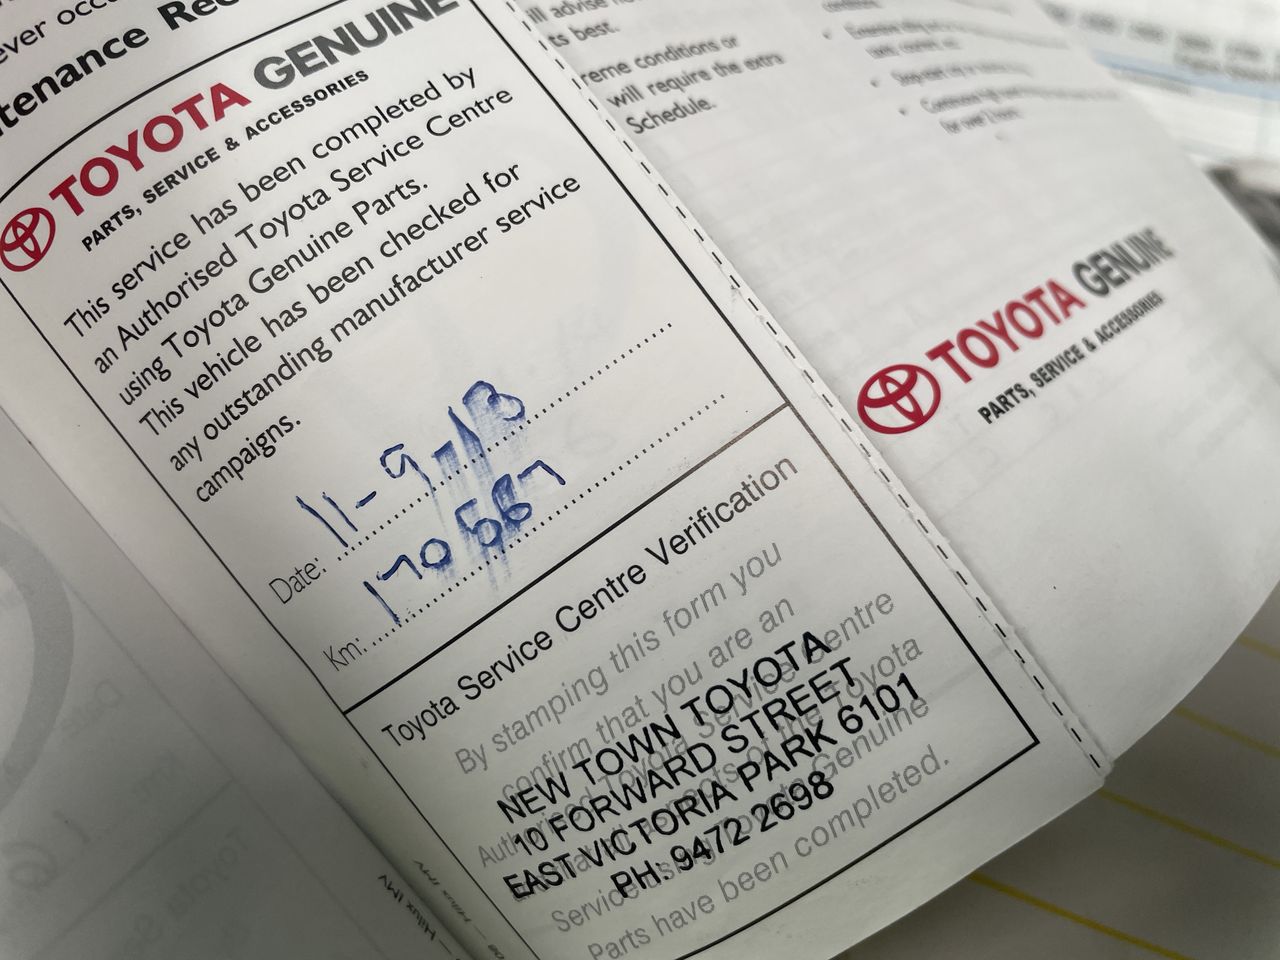 TOYOTA GENUINE
PARTS, SERVICE & ACCESSORIES
This service has been completed by
an Authorised Toyota Service Centre
using Toyota Genuine Parts.
This vehicle has been checked for
any outstanding manufacturer service
campaigns.
Date: 11-9-13
Km: 170567
Toyota Service Centre Verification
By stamping this form you
confirm that you are an
Authorised Toyota Service Centre
of the Toyota
Service using Genuine
Parts have been completed.
NEW TOWN TOYOTA
10 FORWARD STREET
EAST VICTORIA PARK 6101
PH: 9472 2698
Hilux IMV
ts best.
reme conditions or
will require the extra
Schedule.
TOYOTA GENUINE
PARTS, SERVICE & ACCESSORIES